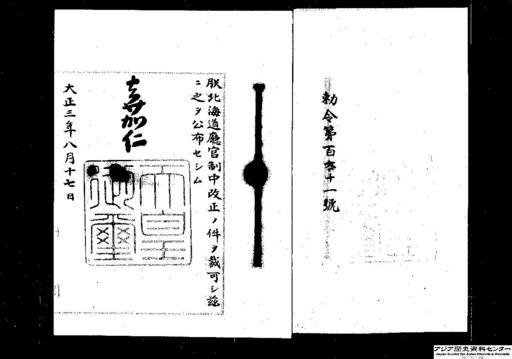 勅令第百十一號
朕北海道廳官制中改正ノ件ヲ裁可シ茲
ニ之ヲ公布セシム
嘉仁
天皇
御璽
大正三年八月十七日
アジア歴史資料センター
Japan Center for Asian Historical Records